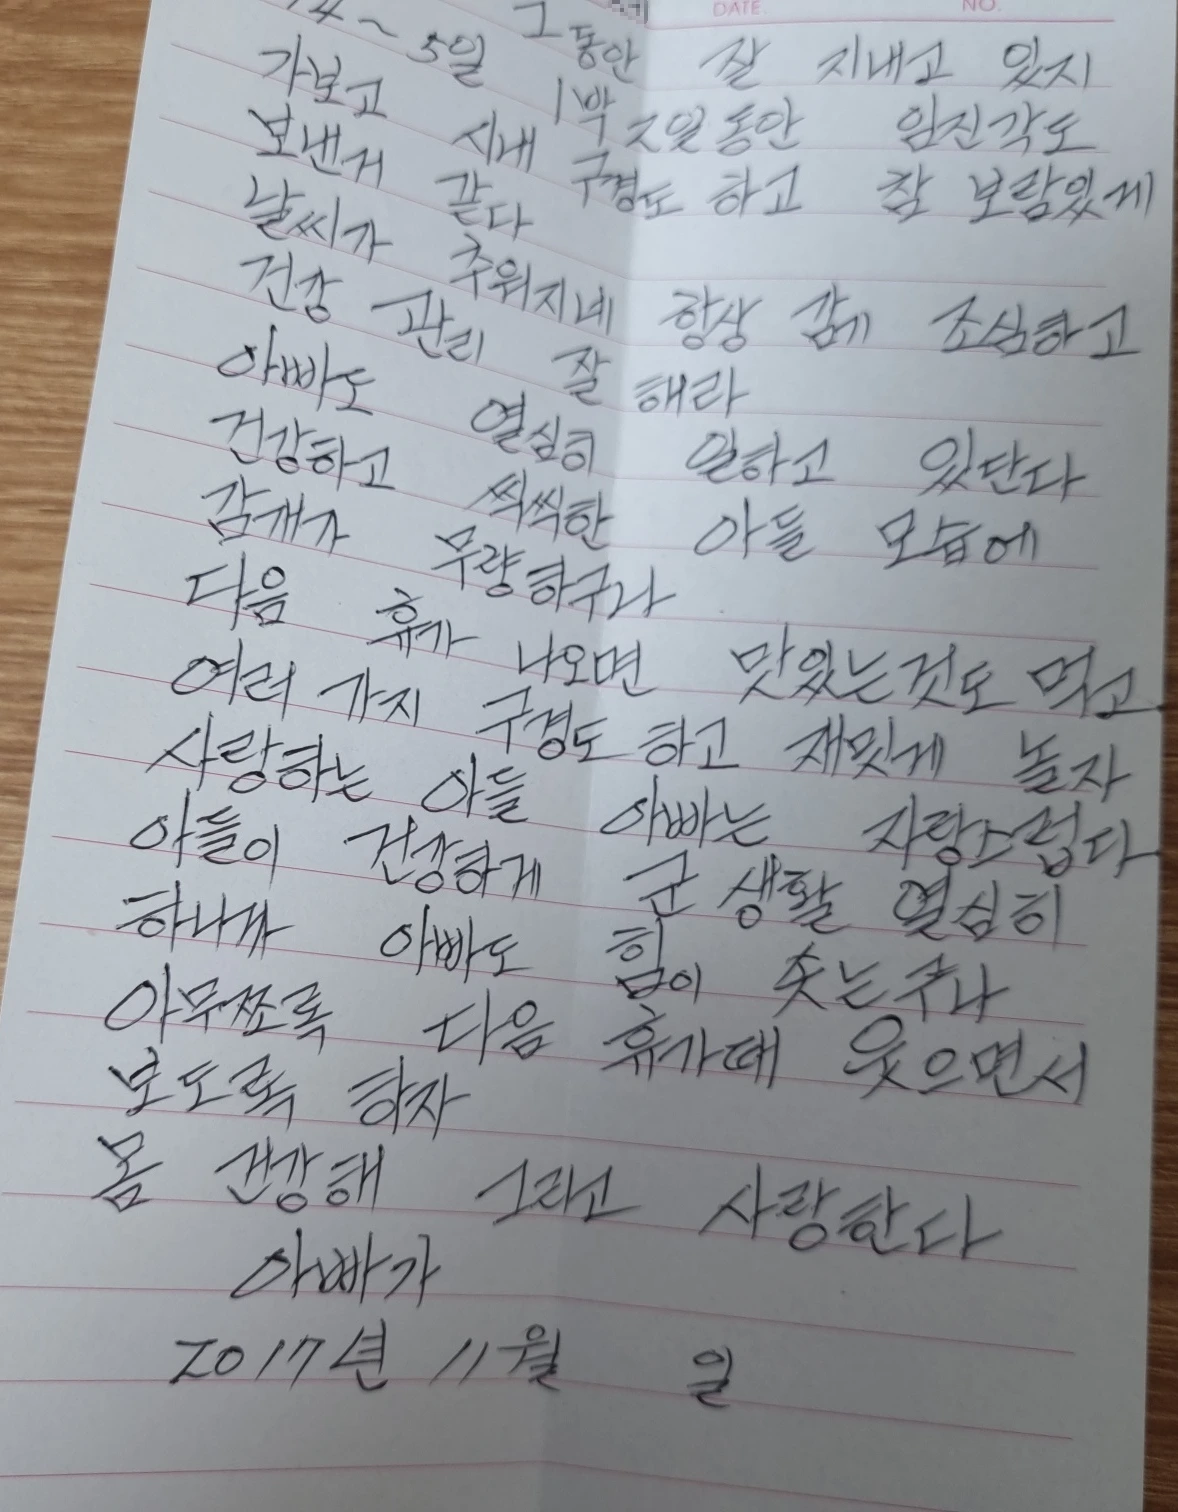 DATE. NO.
그동안 잘 지내고 있지
4~5일 1박 2일동안 임진각도
가보고 시내 구경도 하고 참 보람있게
보낸거 같다
날씨가 추워지네 항상 감기 조심하고
건강 관리 잘 해라
아빠도 열심히 일하고 있단다
건강하고 씩씩한 아들 모습에
감개가 무량하구나
다음 휴가 나오면 맛있는것도 먹고
여러 가지 구경도 하고 재밋게 놀자
사랑하는 아들 아빠는 자랑스럽다
아들이 건강하게 군 생활 열심히
하니까 아빠도 힘이 솟는구나
아무쪼록 다음 휴가때 웃으면서
보도록 하자
몸 건강해 그리고 사랑한다
아빠가
2017년 11월 일